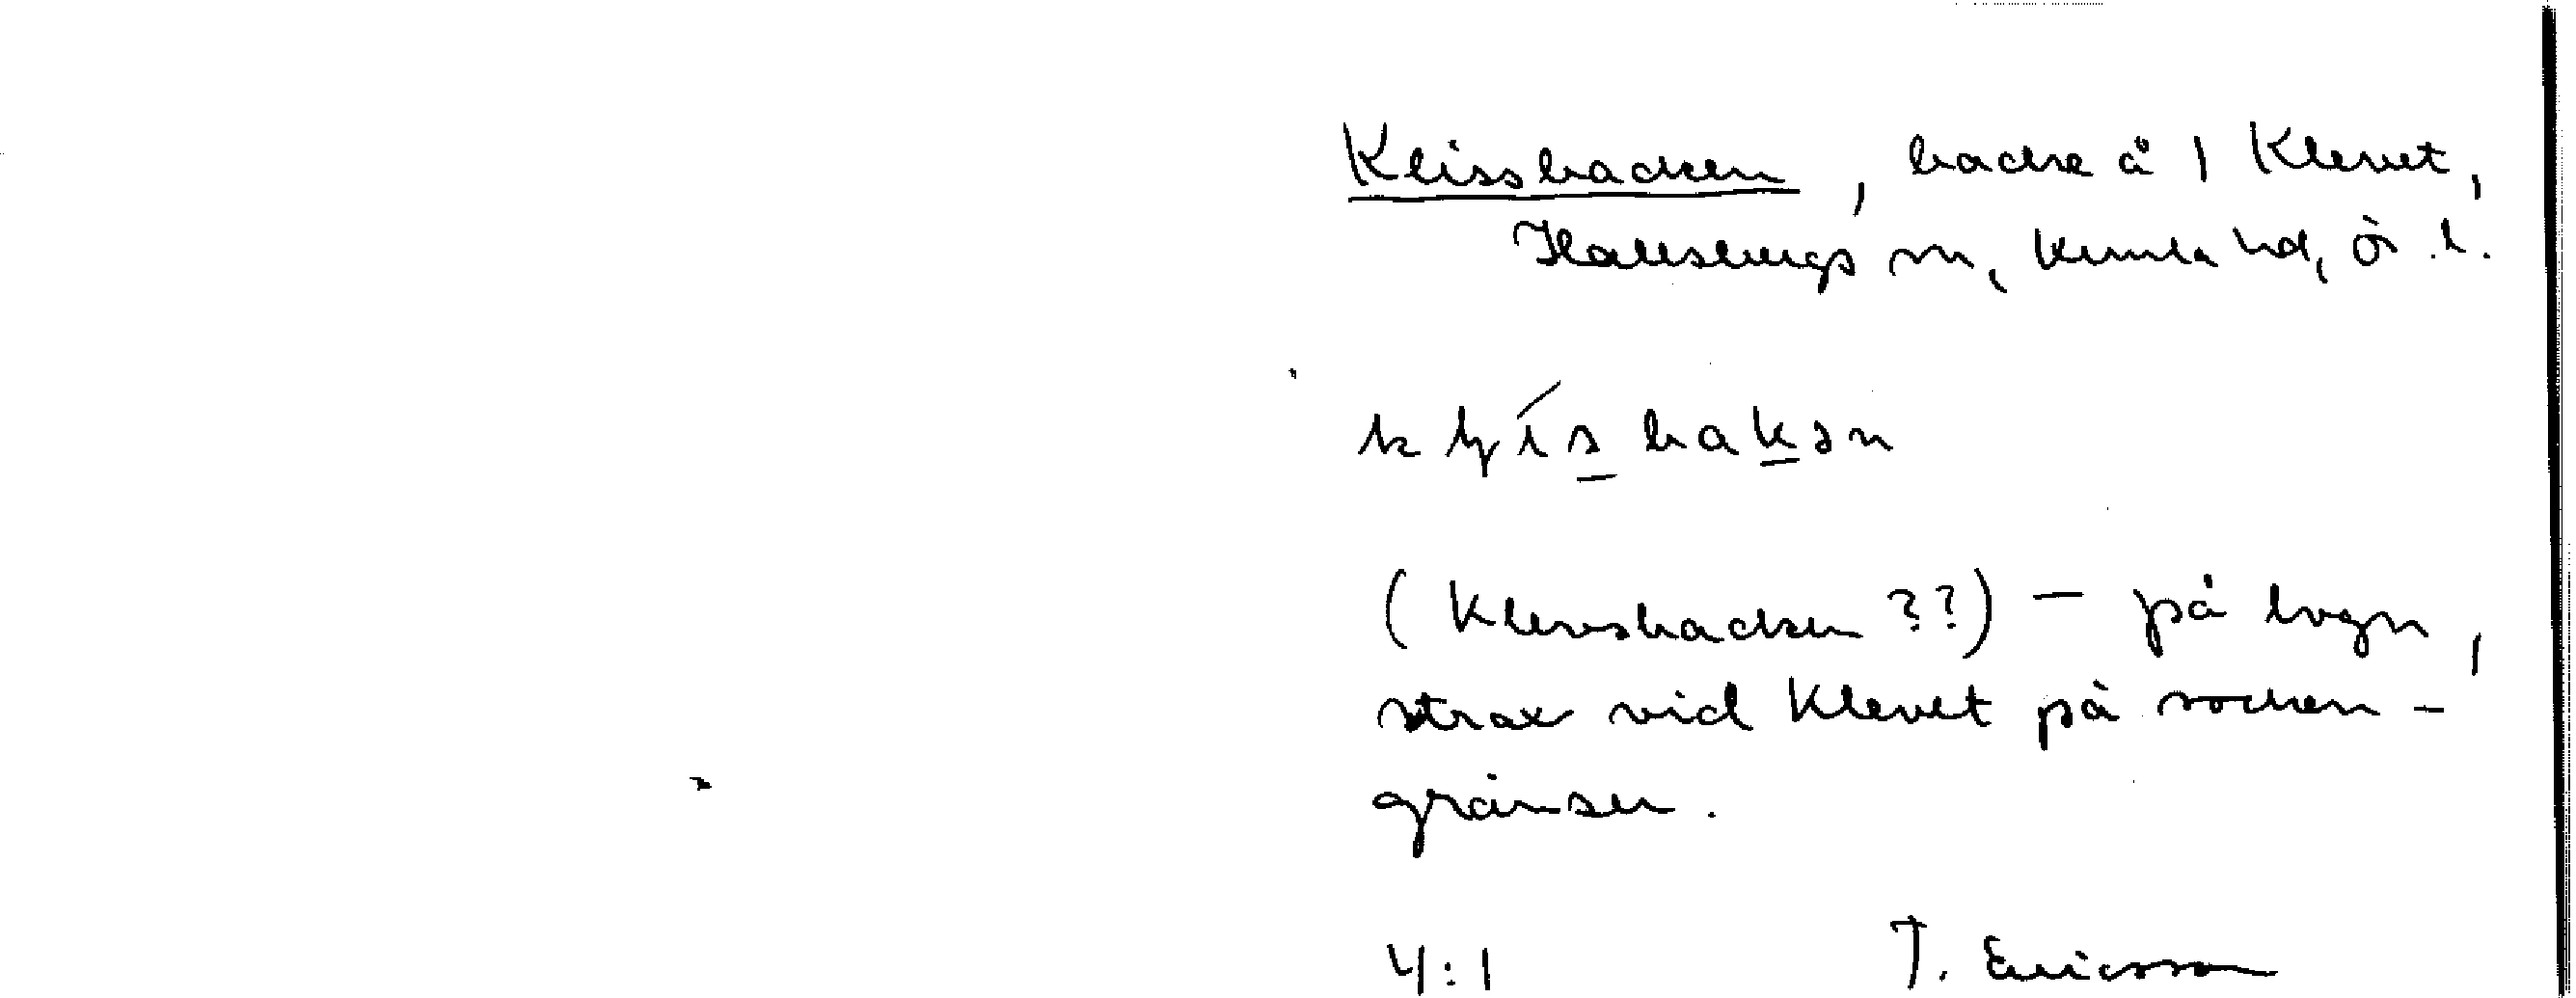 Klissbacken, backe å 1 Klevet,
Hallsbergs sn, Kumla hd, Ör. l.
klísbakən
(Klevsbacken ??) - på lvgn,
strax vid Klevet på socken-
gränsen.
4:1 T. Ericsson